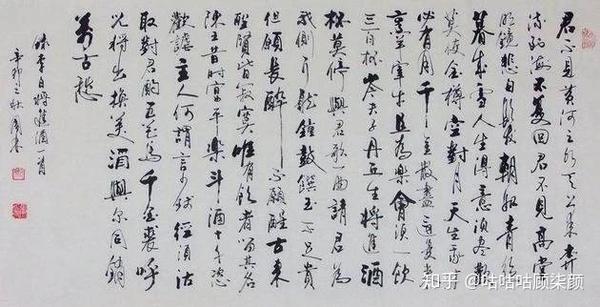 君不見黃河之水天上來奔
流到海不復回君不見高堂
明鏡悲白髮朝如青絲
暮成雪人生得意須盡歡
莫使金樽空對月天生我
必有用千金散盡還復來
烹羊宰牛且為樂會須一飲
三百杯岑夫子丹丘生將進酒
杯莫停與君歌一曲請君為
我側耳聽鐘鼓饌玉不足貴
但願長醉不願醒古來
聖賢皆寂寞唯有飲者留其名
陳王昔時宴平樂斗酒十千恣
歡謔主人何謂言少錢徑須沽
取對君酌五花馬千金裘呼
兒將出換美酒與爾同銷
萬古愁
錄李白將進酒一首
辛卯之秋
知乎 @咕咕咕顾柒颜